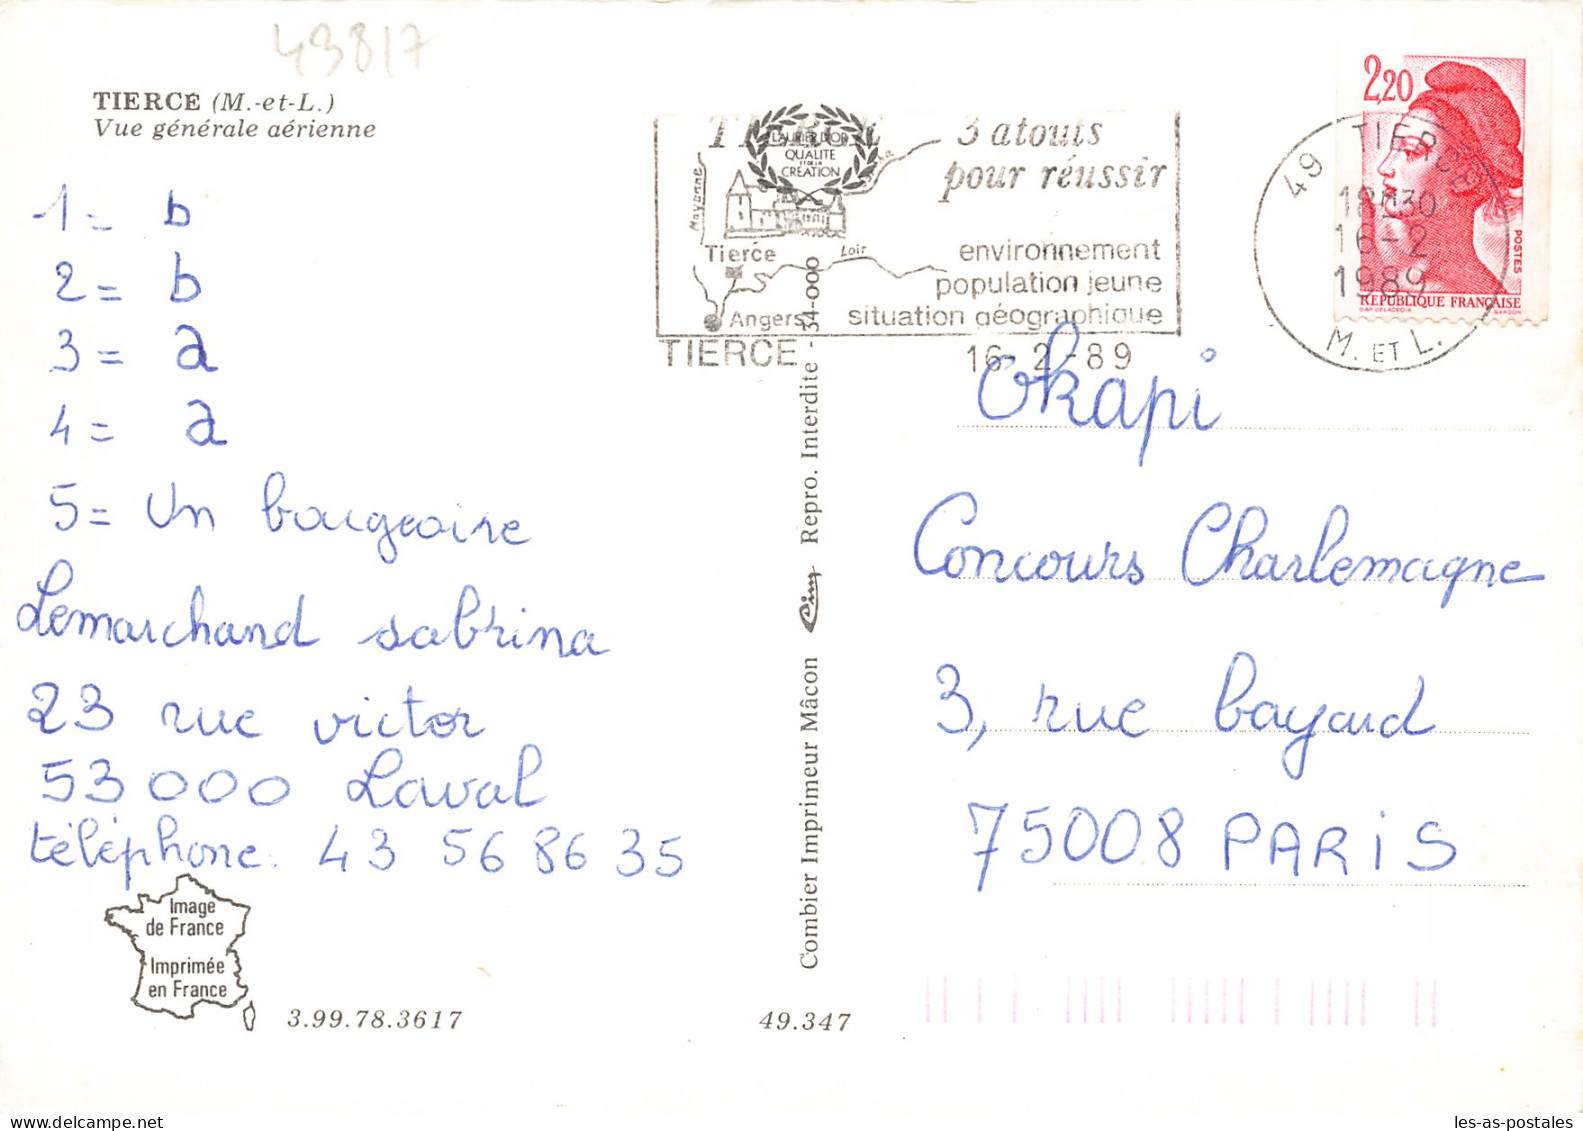 43817
TIERCE (M.-et-L.)
Vue générale aérienne
1= b
2= b
3= a
4= a
5= Un bourgeoire
Lemarchand sabrina
23 rue victor
53 000 Laval
téléphone: 43 56 86 35
Image
de France
Imprimée
en France
3.99.78.3617
49.347
Combier Imprimeur Mâcon Cim Repro. Interdite - 34-000
LAURIER D'OR
QUALITE
ET DE LA
CREATION
3 atouts
pour réussir
Mayenne
Tierce
Loir
Angers
environnement
population jeune
situation géographique
TIERCE
16-2-89
49 TIERCE
18H30
16-2
1989
M. ET L.
2,20
POSTES
REPUBLIQUE FRANÇAISE
D'AP. DELACROIX GANDON
Okapi
Concours Charlemagne
3, rue bayard
75008 PARiS
les-as-postales